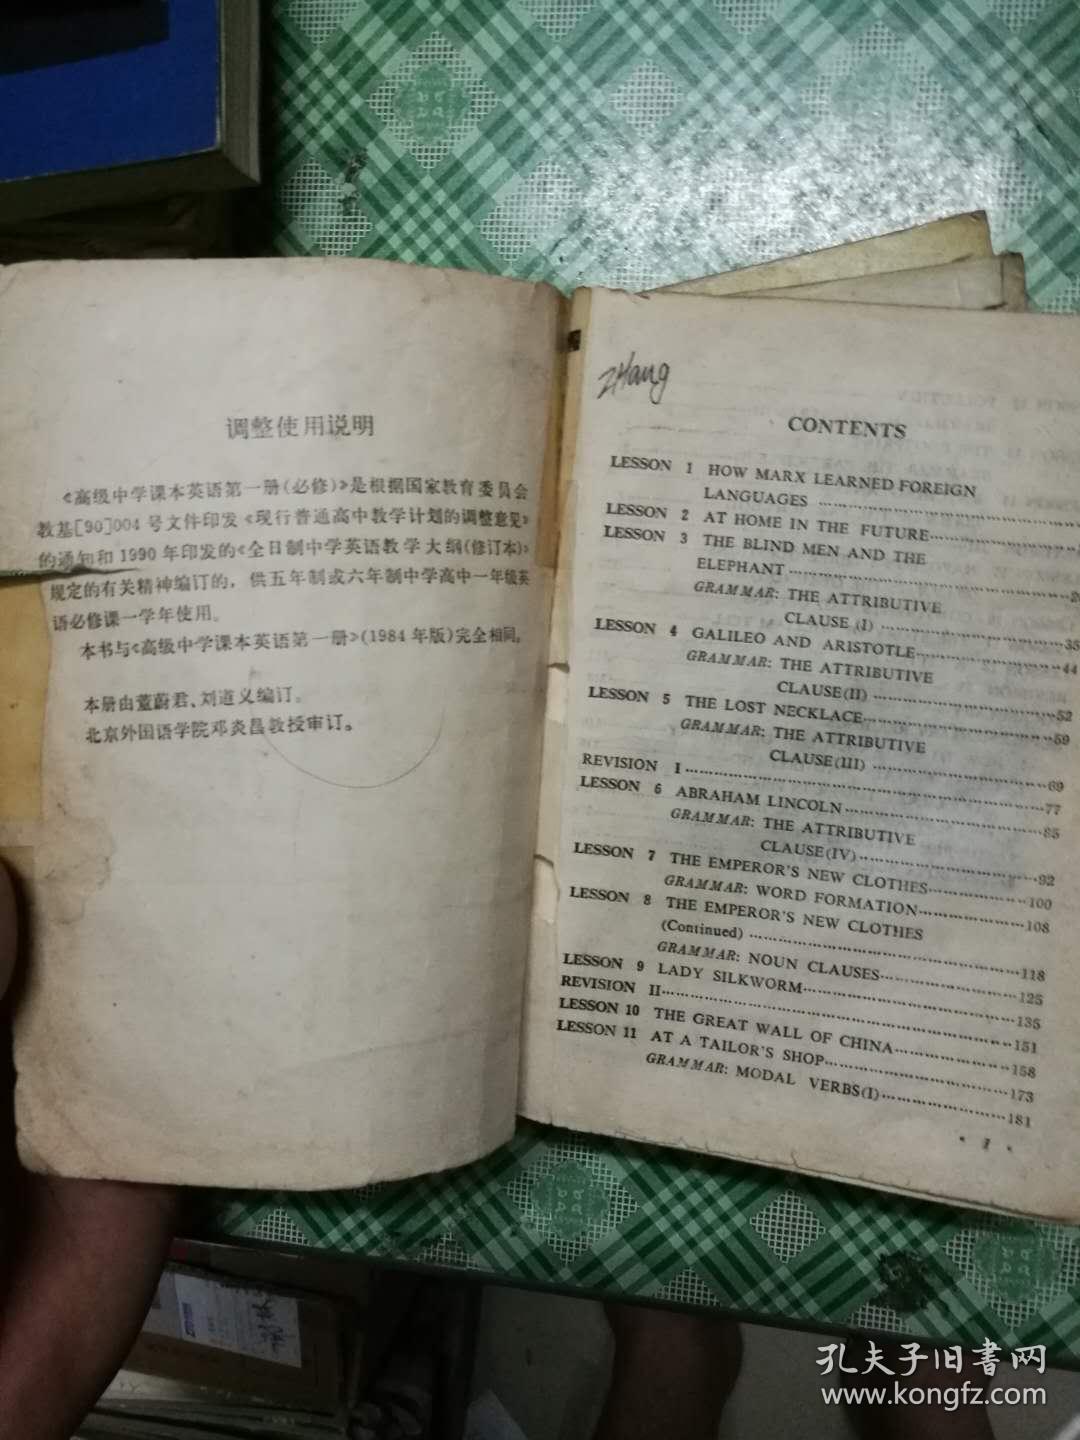 调整使用说明
《高级中学课本英语第一册(必修)》是根据国家教育委员会
教基[90]004号文件印发《现行普通高中教学计划的调整意见》
的通知和1990年印发的《全日制中学英语教学大纲(修订本)》
规定的有关精神编订的，供五年制或六年制中学高中一年级英
语必修课一学年使用。
本书与《高级中学课本英语第一册》(1984年版)完全相同。
本册由董蔚君、刘道义编订。
北京外国语学院邓炎昌教授审订。
ZHang
CONTENTS
LESSON 1 HOW MARX LEARNED FOREIGN
LANGUAGES
LESSON 2 AT HOME IN THE FUTURE
LESSON 3 THE BLIND MEN AND THE
ELEPHANT
GRAMMAR: THE ATTRIBUTIVE
CLAUSE (I) 35
LESSON 4 GALILEO AND ARISTOTLE 44
GRAMMAR: THE ATTRIBUTIVE
CLAUSE(II) 52
LESSON 5 THE LOST NECKLACE 59
GRAMMAR: THE ATTRIBUTIVE
CLAUSE(III) 69
REVISION I 77
LESSON 6 ABRAHAM LINCOLN 85
GRAMMAR: THE ATTRIBUTIVE
CLAUSE(IV) 92
LESSON 7 THE EMPEROR'S NEW CLOTHES 100
GRAMMAR: WORD FORMATION 108
LESSON 8 THE EMPEROR'S NEW CLOTHES
(Continued) 118
GRAMMAR: NOUN CLAUSES 125
LESSON 9 LADY SILKWORM 135
REVISION II 151
LESSON 10 THE GREAT WALL OF CHINA 158
LESSON 11 AT A TAILOR'S SHOP 173
GRAMMAR: MODAL VERBS(I) 181
孔夫子旧書网
www.kongfz.com